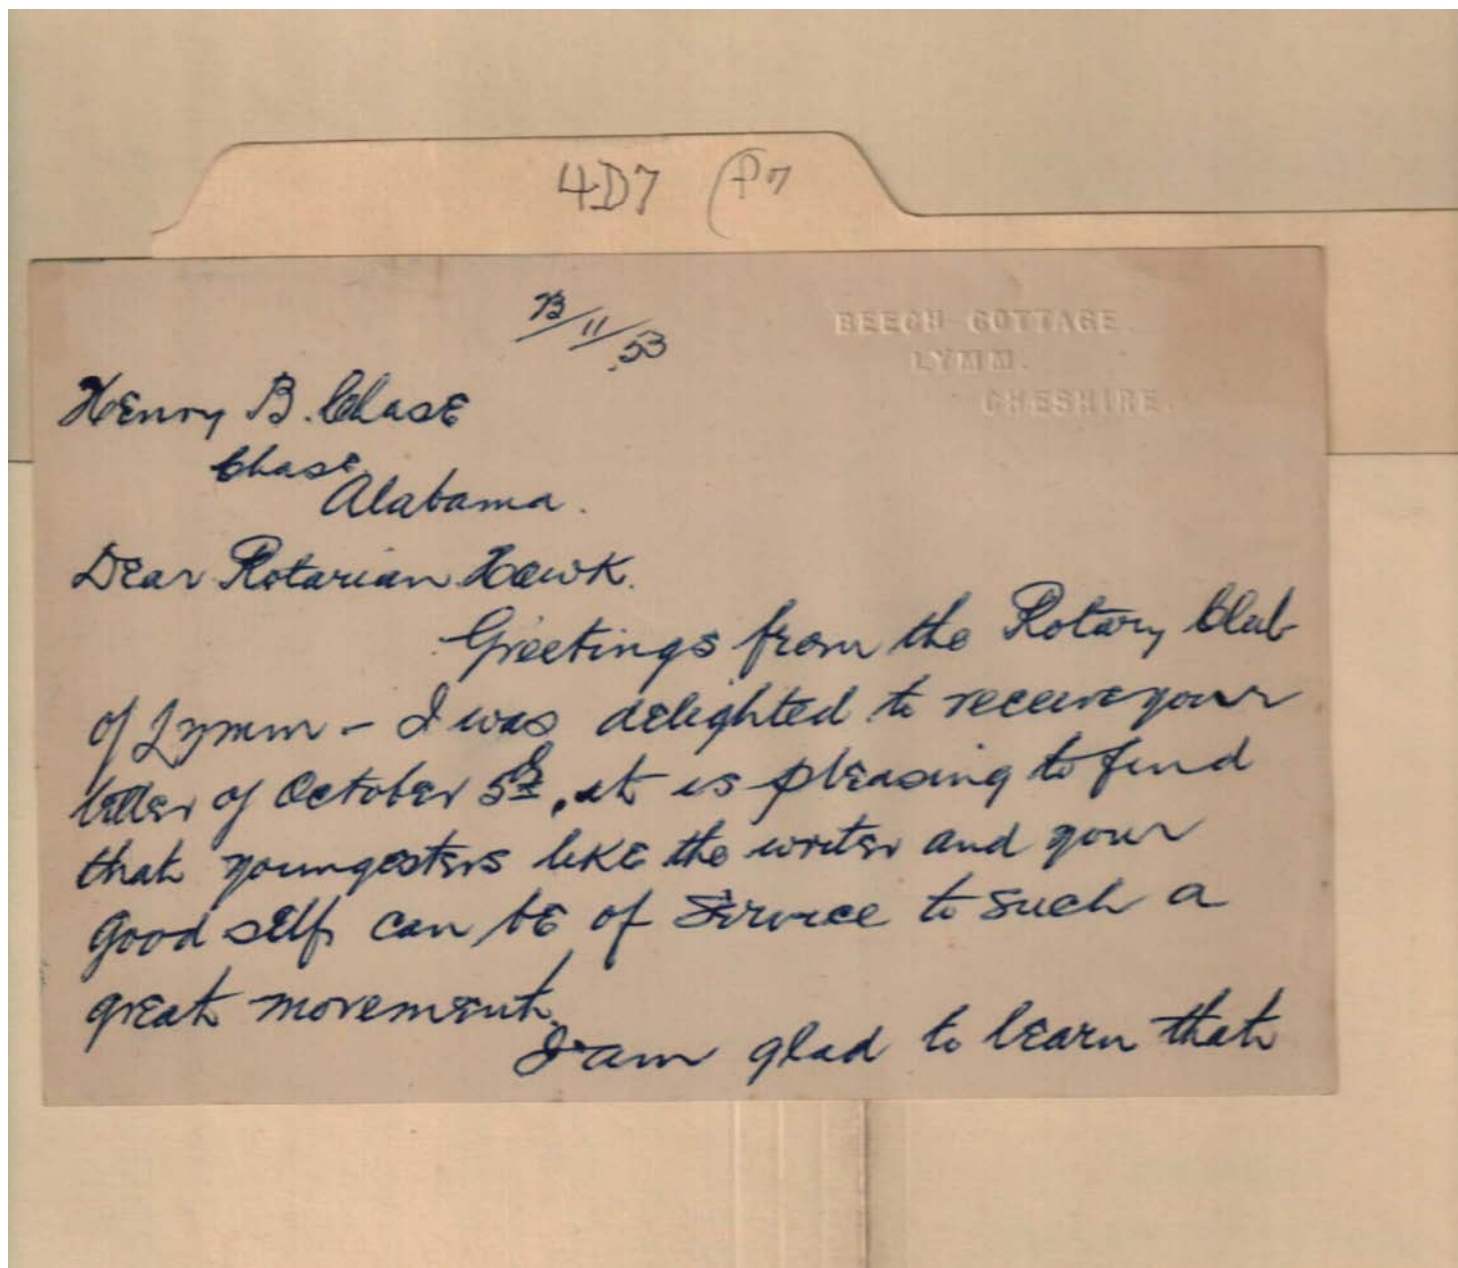 4D7 (P7
BEECH COTTAGE.
LYMM.
CHESHIRE.
/11/53
Henry B. Chase
Chase
Alabama.
Dear Rotarian Hawk.
Greetings from the Rotary Club
of Lymm - I was delighted to receive your
letter of October 5th, it is pleasing to find
that youngesters like the writer and your
good self can be of Service to such a
great movement.
I am glad to learn that